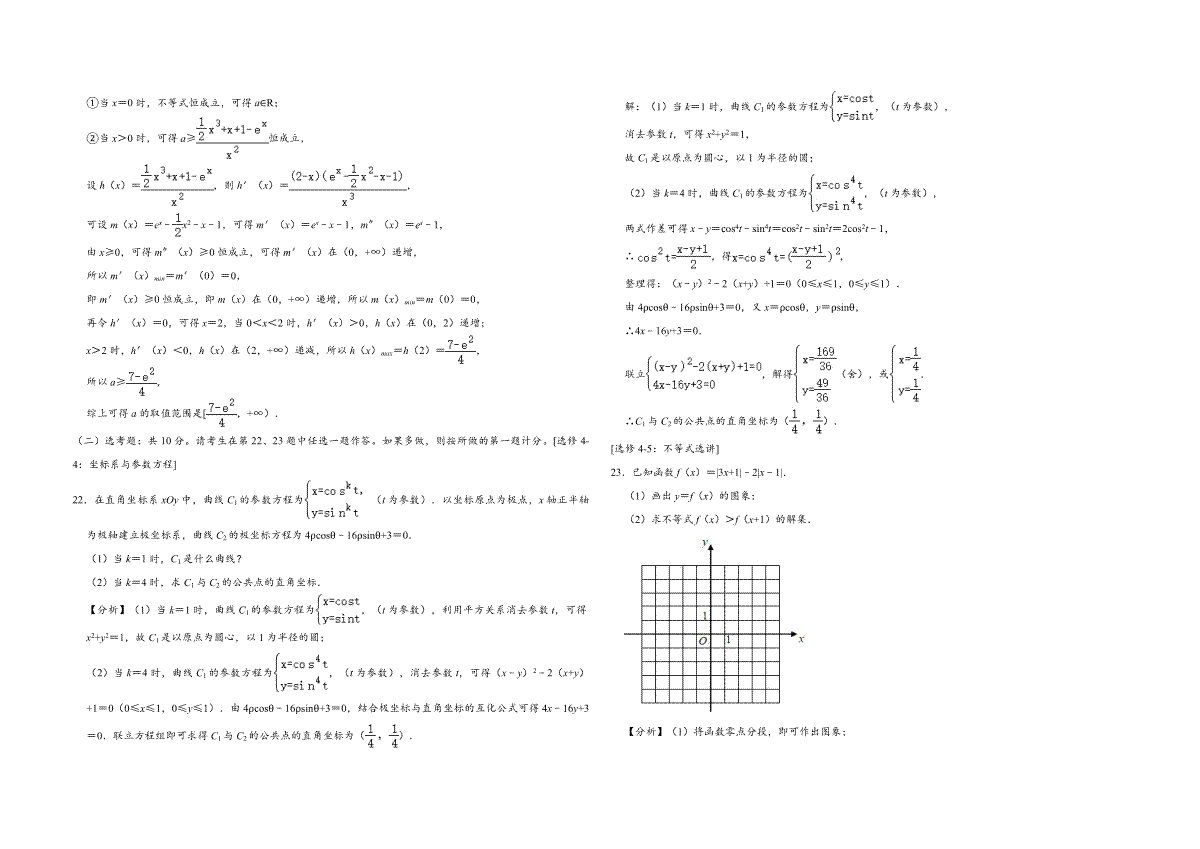 ①当 x=0 时，不等式恒成立，可得 a∈R；
②当 x>0 时，可得 a≥(1/2 x³+x+1-eˣ)/x² 恒成立，
设 h（x）=(1/2 x³+x+1-eˣ)/x²，则 h′（x）=(2-x)(eˣ-1/2 x²-x-1)/x³，
可设 m（x）=eˣ﹣1/2 x²﹣x﹣1，可得 m′（x）=eˣ﹣x﹣1，m″（x）=eˣ﹣1，
由 x≥0，可得 m″（x）≥0 恒成立，可得 m′（x）在（0，+∞）递增，
所以 m′（x）min=m′（0）=0，
即 m′（x）≥0 恒成立，即 m（x）在（0，+∞）递增，所以 m（x）min=m（0）=0，
再令 h′（x）=0，可得 x=2，当 0<x<2 时，h′（x）>0，h（x）在（0，2）递增；
x>2 时，h′（x）<0，h（x）在（2，+∞）递减，所以 h（x）max=h（2）=(7-e²)/4，
所以 a≥(7-e²)/4，
综上可得 a 的取值范围是[(7-e²)/4，+∞）．
（二）选考题：共 10 分。请考生在第 22、23 题中任选一题作答。如果多做，则按所做的第一题计分。[选修 4-
4：坐标系与参数方程]
22．在直角坐标系 xOy 中，曲线 C₁的参数方程为{x=cosᵏt，y=sinᵏt（t 为参数）．以坐标原点为极点，x 轴正半轴
为极轴建立极坐标系，曲线 C₂的极坐标方程为 4ρcosθ﹣16ρsinθ+3=0．
（1）当 k=1 时，C₁是什么曲线？
（2）当 k=4 时，求 C₁与 C₂的公共点的直角坐标．
【分析】（1）当 k=1 时，曲线 C₁的参数方程为{x=cost y=sint，（t 为参数），利用平方关系消去参数 t，可得
x²+y²=1，故 C₁是以原点为圆心，以 1 为半径的圆；
（2）当 k=4 时，曲线 C₁的参数方程为{x=cos⁴t y=sin⁴t，（t 为参数），消去参数 t，可得（x﹣y）²﹣2（x+y）
+1=0（0≤x≤1，0≤y≤1）．由 4ρcosθ﹣16ρsinθ+3=0，结合极坐标与直角坐标的互化公式可得 4x﹣16y+3
=0．联立方程组即可求得 C₁与 C₂的公共点的直角坐标为（1/4，1/4）．
解：（1）当 k=1 时，曲线 C₁的参数方程为{x=cost y=sint，（t 为参数），
消去参数 t，可得 x²+y²=1，
故 C₁是以原点为圆心，以 1 为半径的圆；
（2）当 k=4 时，曲线 C₁的参数方程为{x=cos⁴t y=sin⁴t，（t 为参数），
两式作差可得 x﹣y=cos⁴t﹣sin⁴t=cos²t﹣sin²t=2cos²t﹣1，
∴cos²t=(x-y+1)/2，得x=cos⁴t=((x-y+1)/2)²，
整理得：（x﹣y）²﹣2（x+y）+1=0（0≤x≤1，0≤y≤1）．
由 4ρcosθ﹣16ρsinθ+3=0，又 x=ρcosθ，y=ρsinθ，
∴4x﹣16y+3=0．
联立{(x-y)²-2(x+y)+1=0 4x-16y+3=0，解得{x=169/36 y=49/36（舍），或{x=1/4 y=1/4．
∴C₁与 C₂的公共点的直角坐标为（1/4，1/4）．
[选修 4-5：不等式选讲]
23．已知函数 f（x）=|3x+1|﹣2|x﹣1|．
（1）画出 y=f（x）的图象；
（2）求不等式 f（x）>f（x+1）的解集．
y
1
O 1 x
【分析】（1）将函数零点分段，即可作出图象；